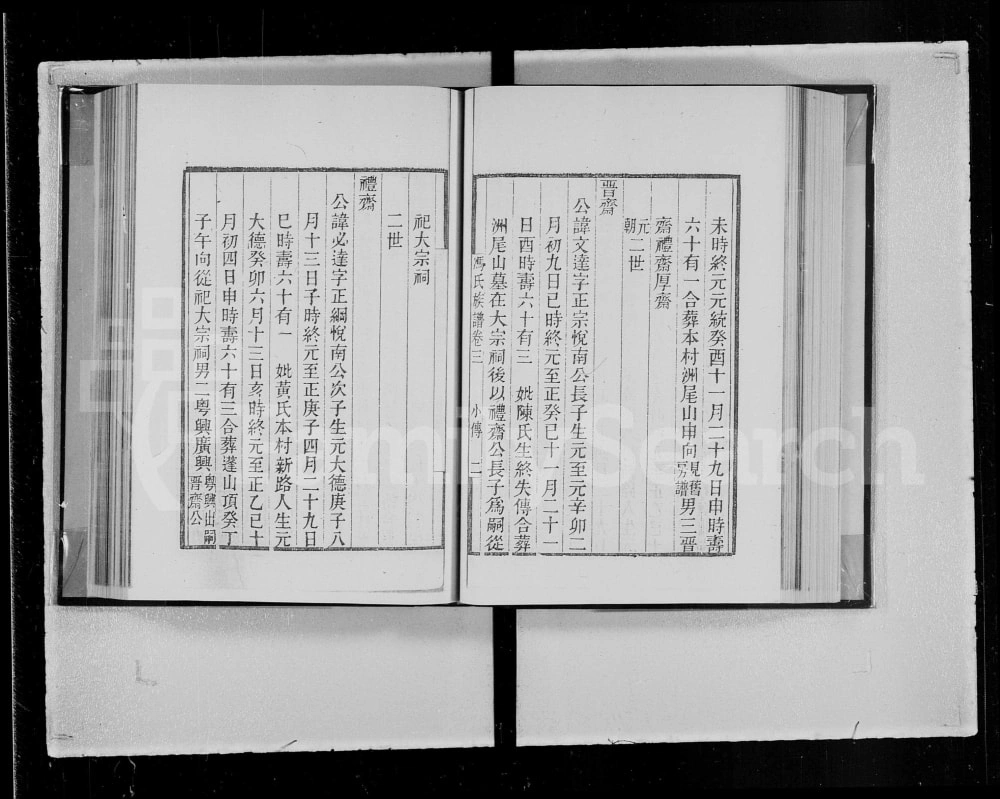 未時終元元統癸酉十一月二十九日申時壽
六十有一合葬本村洲尾山申向見舊房譜男三晋
齋禮齋厚齋
元朝二世
晋齋
公諱文達字正宗悅南公長子生元至元辛卯二
月初九日巳時終元至正癸巳十一月二十一
日酉時壽六十有三 妣陳氏生終失傳合葬
洲尾山墓在大宗祠後以禮齋公長子爲嗣從
馮氏族譜卷三 小傳 二
祀大宗祠
二世
禮齋
公諱必達字正綱悅南公次子生元大德庚子八
月十三日子時終元至正庚子四月二十九日
巳時壽六十有一 妣黃氏本村新路人生元
大德癸卯六月十三日亥時終元至正乙巳十
月初四日申時壽六十有三合葬蓬山頂癸丁
子午向從祀大宗祠男二粵興廣興粵興出嗣晋齋公
FamilySearch